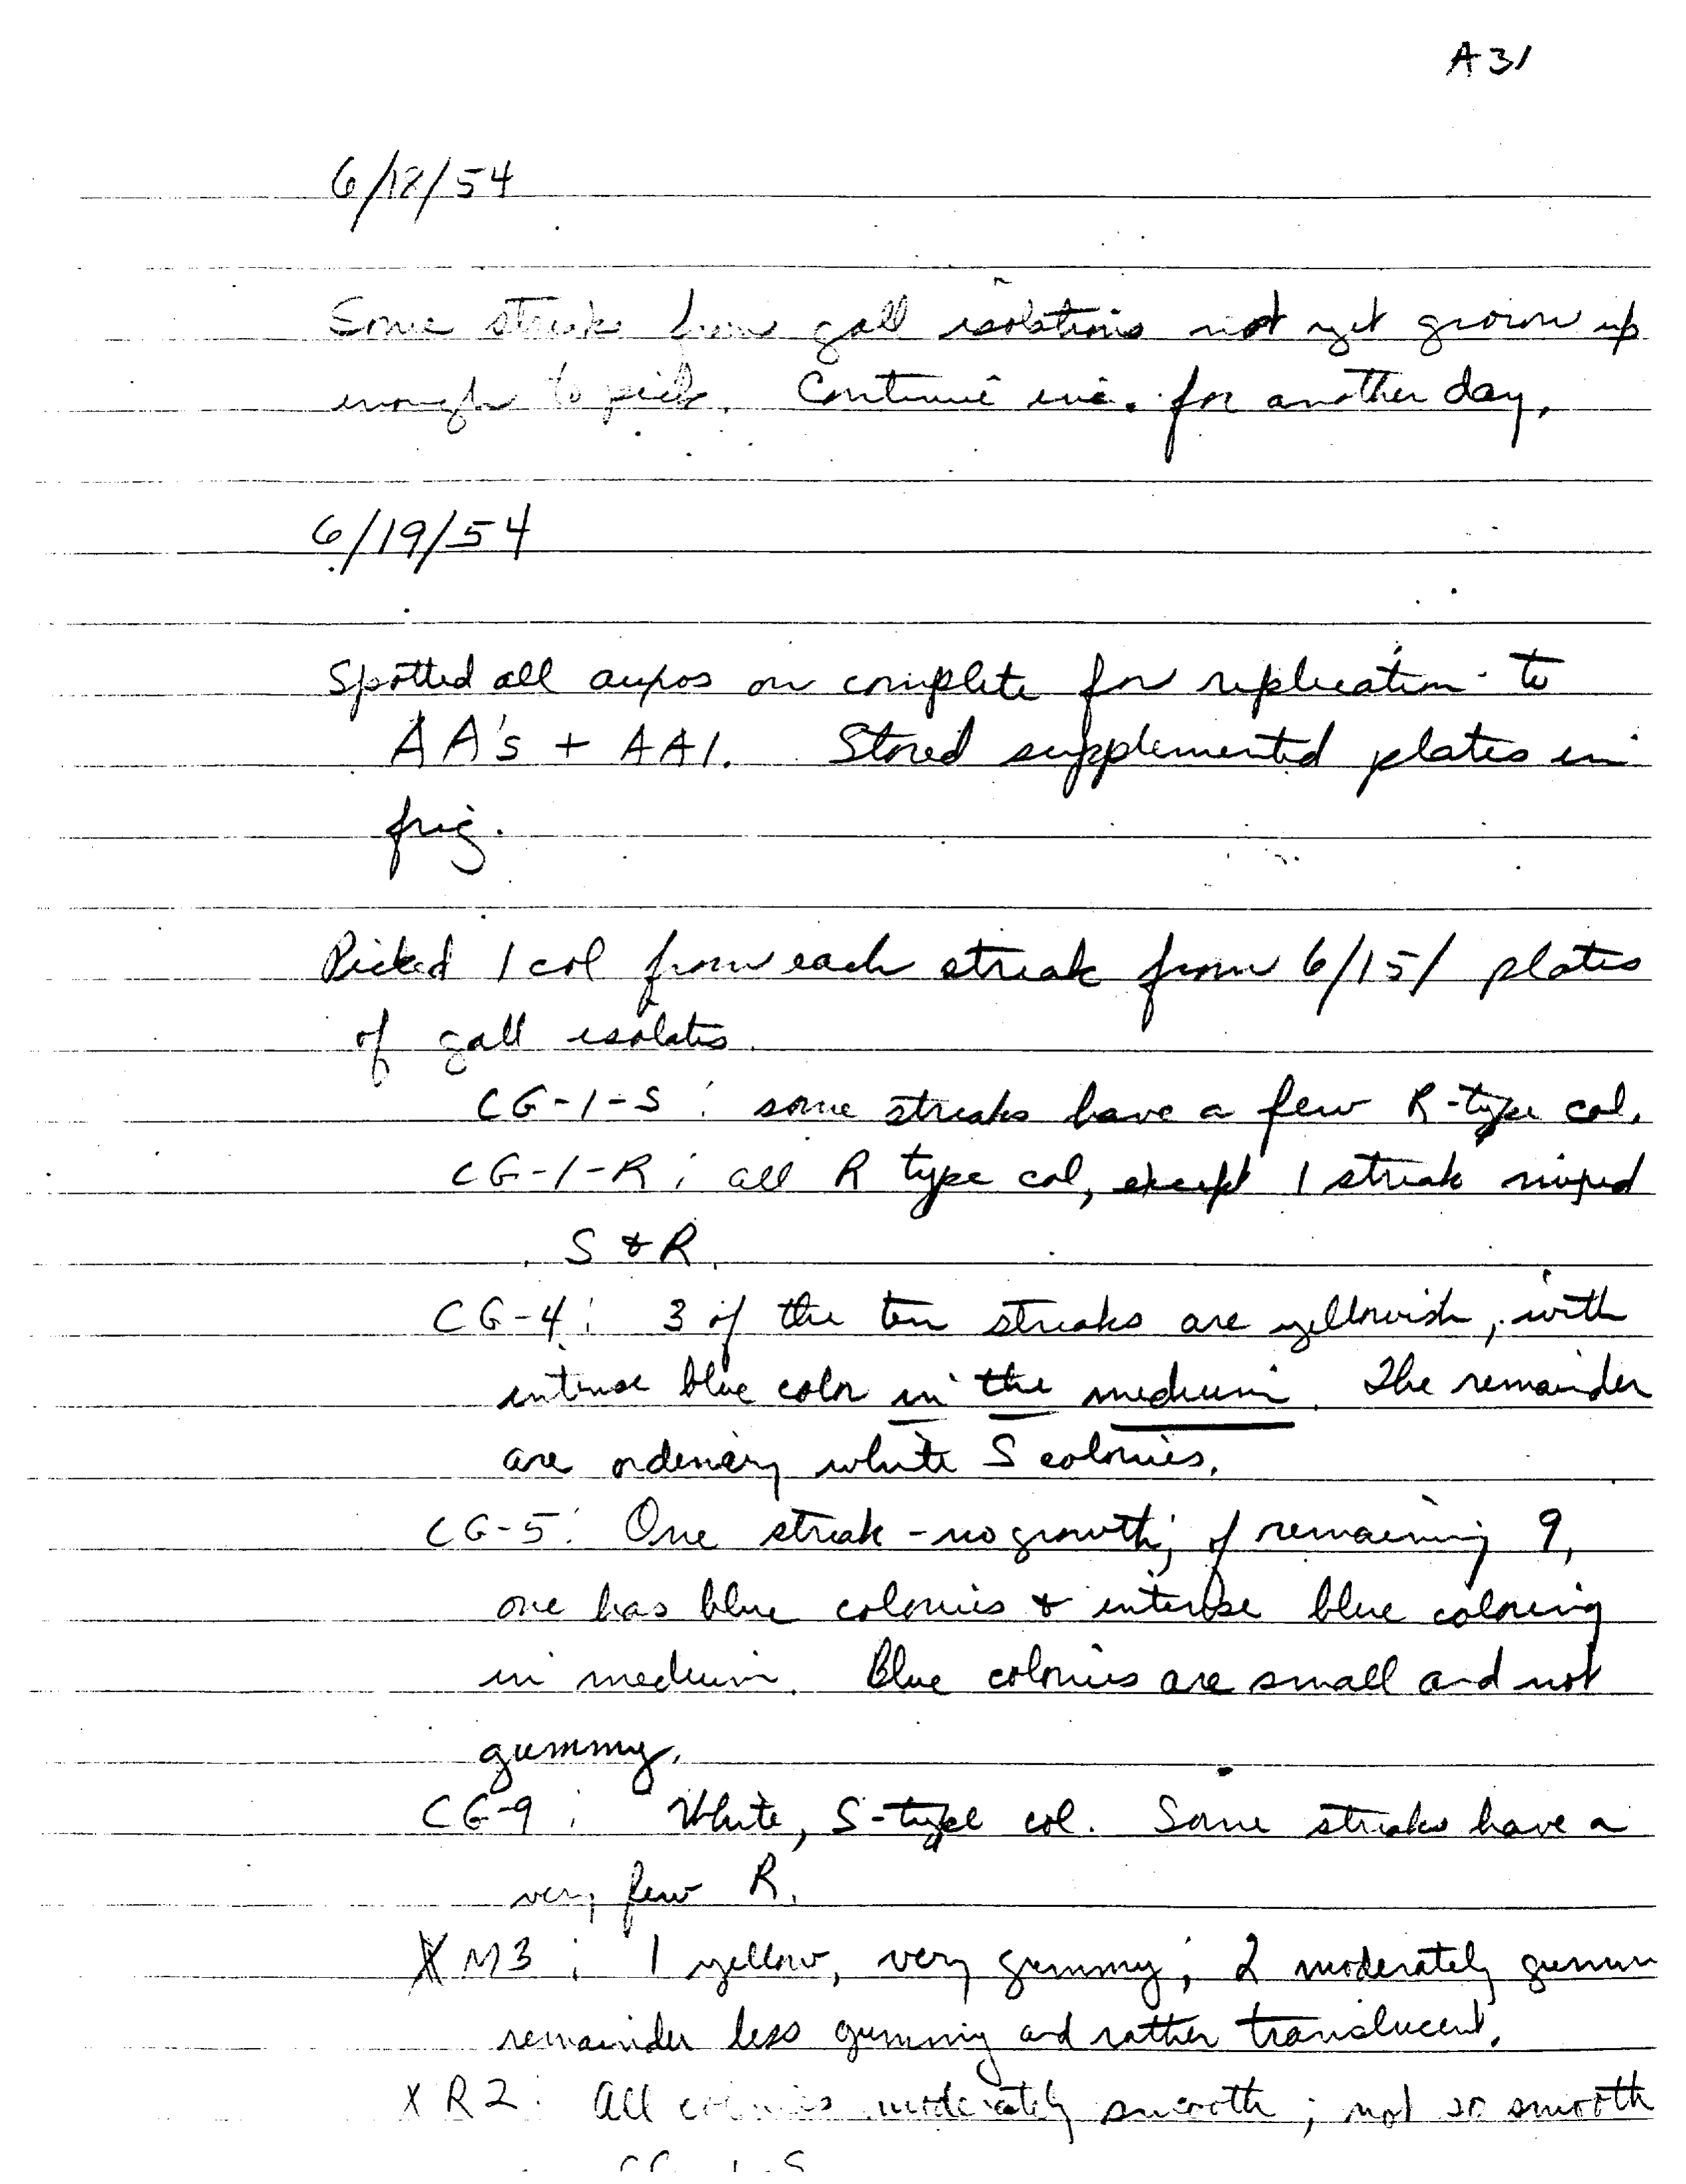 A31
6/18/54
Some streaks from gall isolations not yet grown up
enough to pick. Continue inc. for another day.
6/19/54
Spotted all auxos on complete for replication to
AA's + AA1. Stored supplemented plates in
frig.
Picked 1 col from each streak from 6/15/ plates
of gall isolates.
CG-1-S: some streaks have a few R-type col.
CG-1-R: all R type col, except 1 streak mixed
S & R.
CG-4: 3 of the ten streaks are yellowish, with
intense blue color in the medium. The remainder
are ordinary white S colonies.
CG-5: One streak - no growth; of remaining 9,
one has blue colonies & intense blue coloring
in medium. Blue colonies are small and not
gummy.
CG-9: White, S-type col. Some streaks have a
very few R.
XM3: 1 yellow, very gummy; 2 moderately gumm
remainder less gummy and rather translucent.
XR2: All colonies moderately smooth; not so smooth
CG-1-S